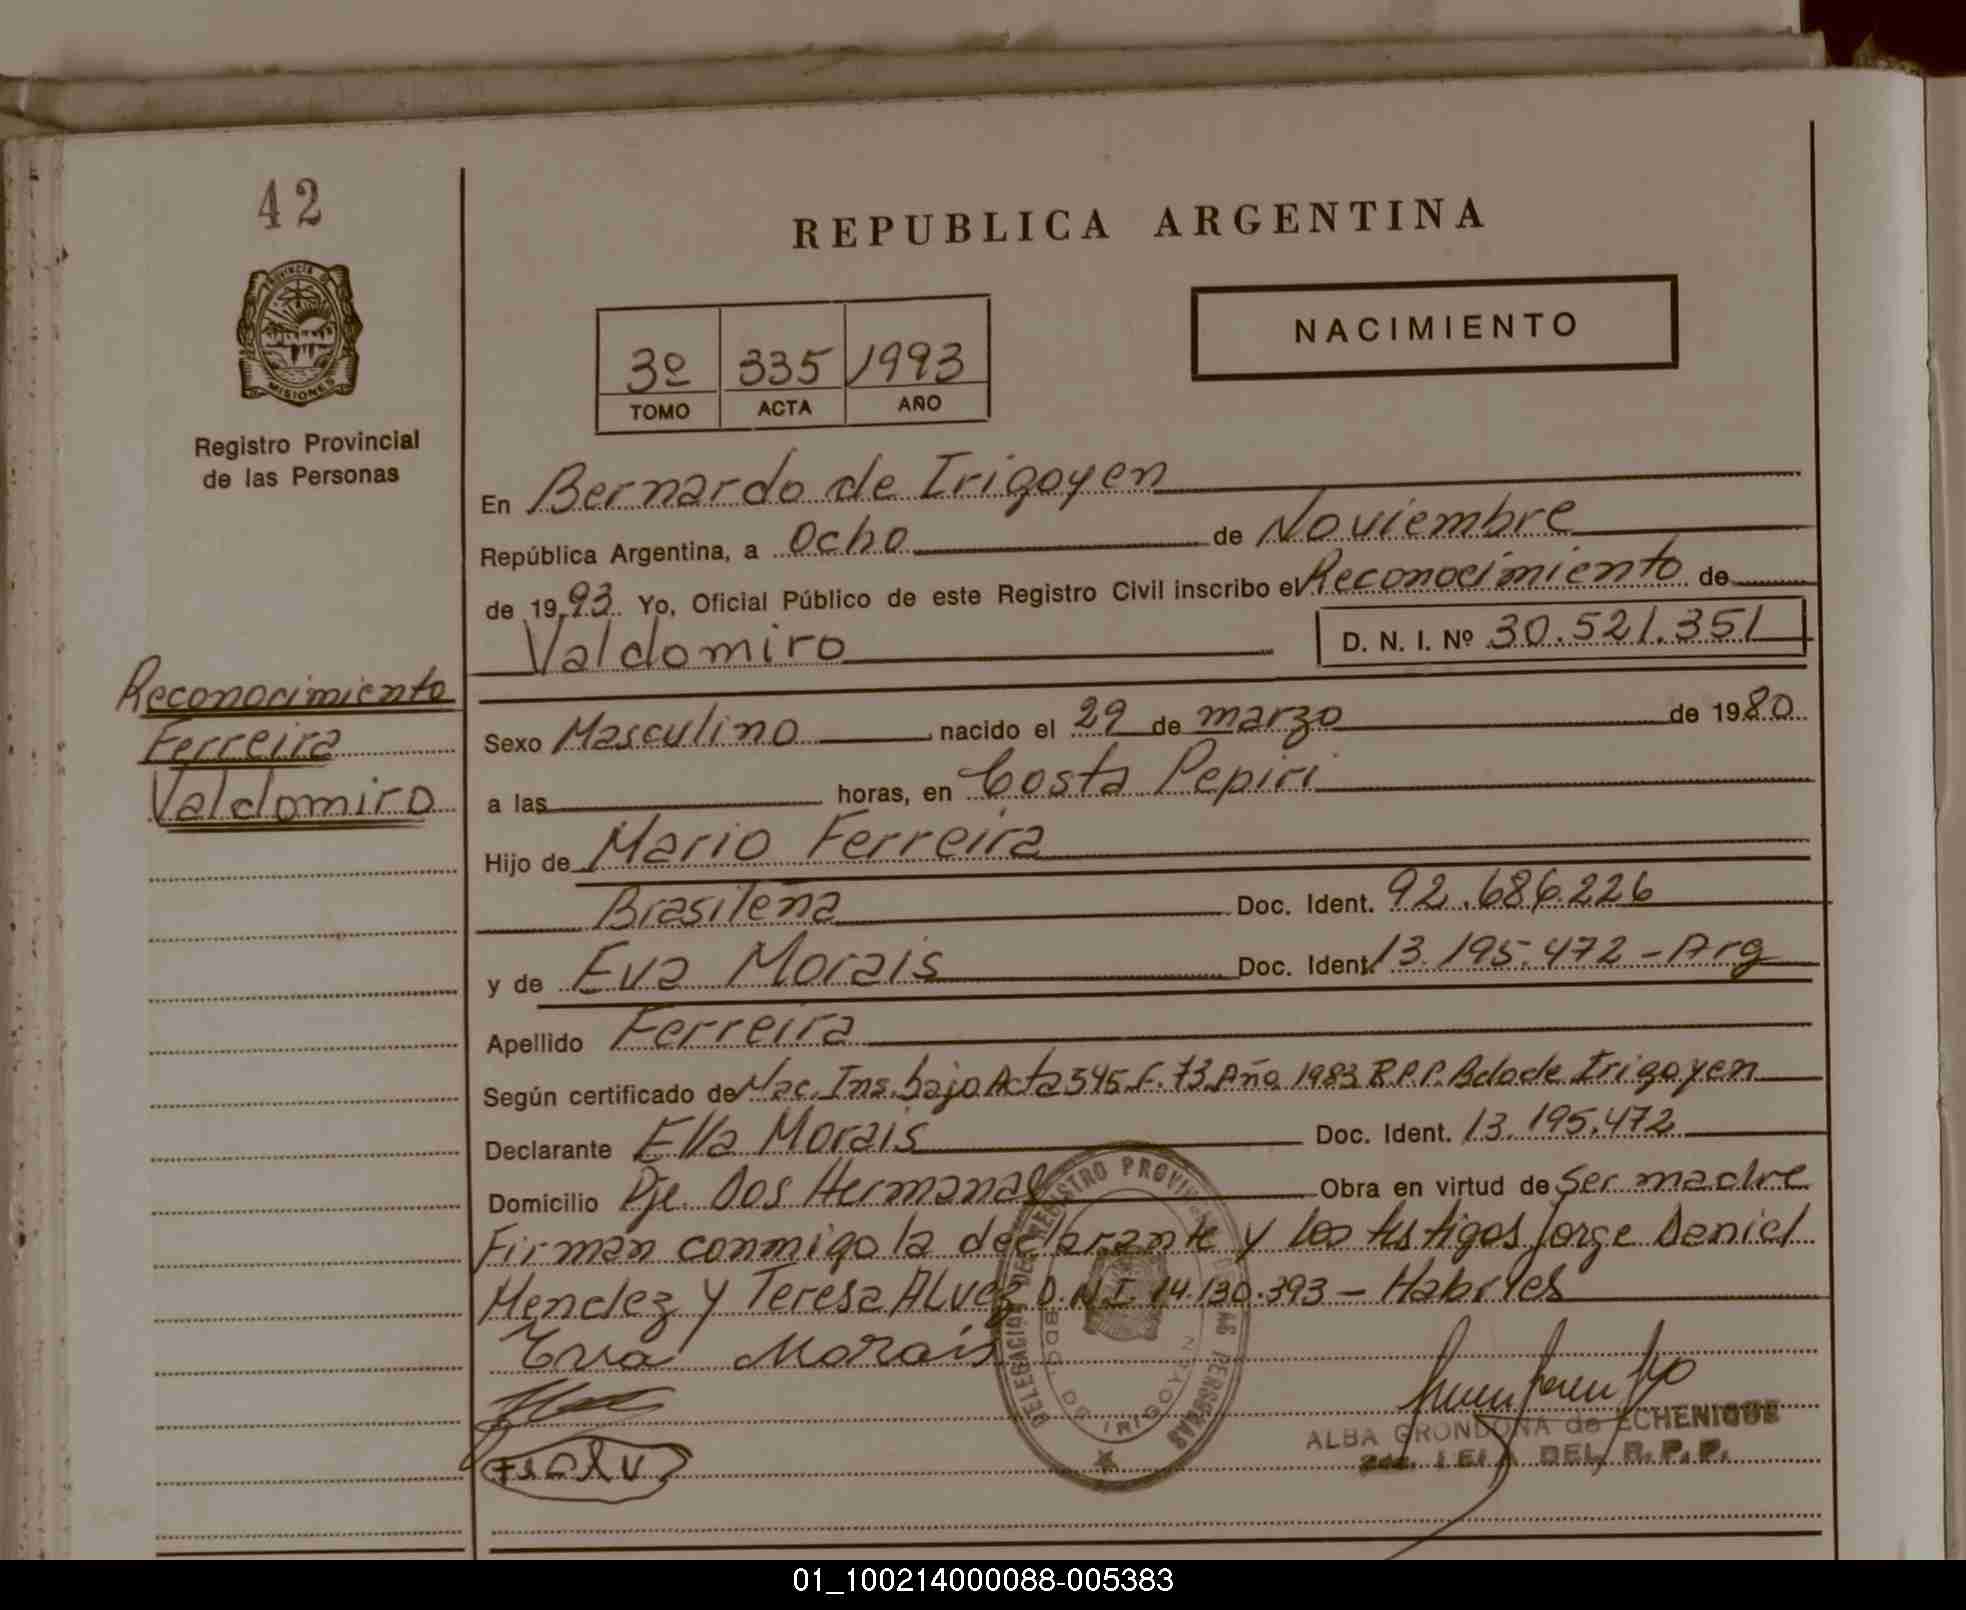 42
REPUBLICA ARGENTINA
PROVINCIA DE MISIONES
NACIMIENTO
3º 335 1993
TOMO ACTA AÑO
Registro Provincial
de las Personas
En Bernardo de Irigoyen
República Argentina, a Ocho de Noviembre
de 1993 Yo, Oficial Público de este Registro Civil inscribo el Reconocimiento de
Valdomiro D. N. I. Nº 30.521.351
Reconocimiento
Ferreira
Valdomiro
Sexo Masculino nacido el 29 de marzo de 1980
a las horas, en Costa Pepiri
Hijo de Mario Ferreira
Brasileña Doc. Ident. 92.686.226
y de Eva Morais Doc. Ident. 13.195.472 - Arg
Apellido Ferreira
Según certificado de Nac. Ins. bajo Acta 345 F. 73 Año 1983 R.P.P. Bdo de Irigoyen
Declarante Eva Morais Doc. Ident. 13.195.472
Domicilio Pje. Dos Hermanas Obra en virtud de Ser madre
Firman conmigo la declarante y los testigos Jorge Daniel
Mendez y Teresa Alvez D.N.I. 14.130.393 - Habiles
Eva Morais
DELEGACION DEL REGISTRO PROVINCIAL DE LAS PERSONAS
BDO. DE IRIGOYEN
ALBA GRONDONA de ECHENIQUE
DEL R. P. P.
01_100214000088-005383